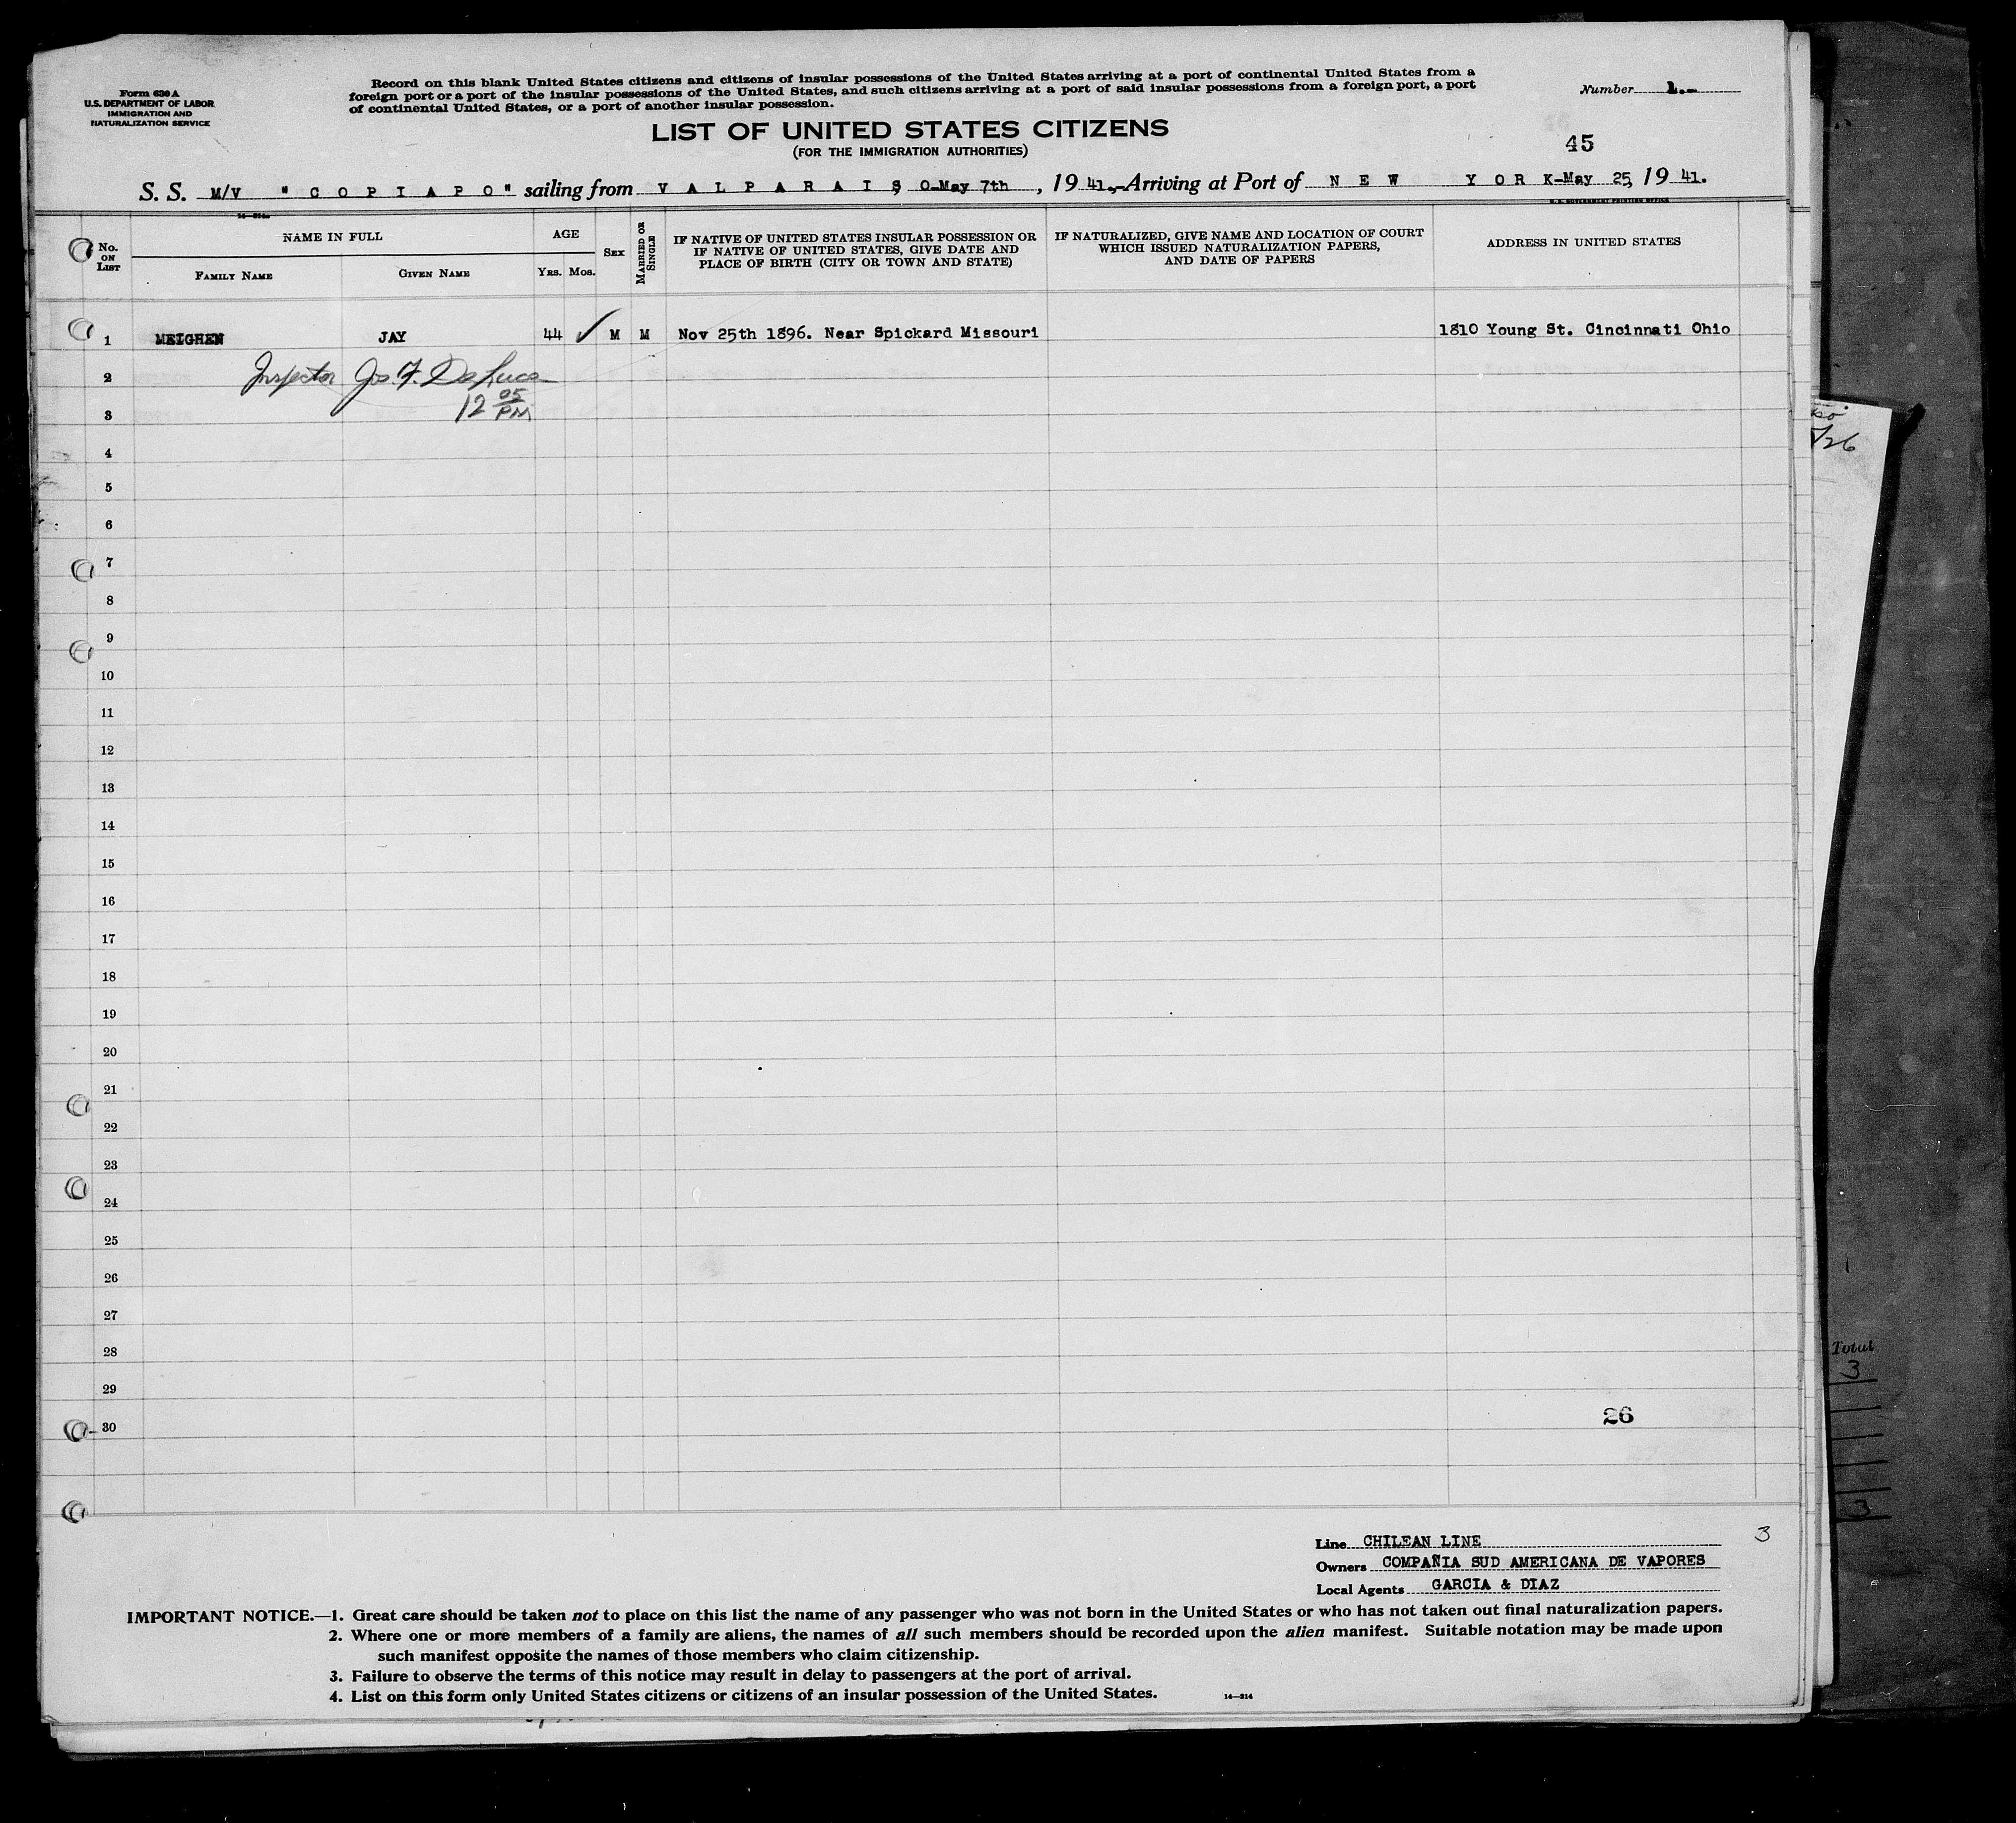 Form 630 A
U.S. DEPARTMENT OF LABOR
IMMIGRATION AND
NATURALIZATION SERVICE
Record on this blank United States citizens and citizens of insular possessions of the United States arriving at a port of continental United States from a
foreign port or a port of the insular possessions of the United States, and such citizens arriving at a port of said insular possessions from a foreign port, a port
of continental United States, or a port of another insular possession.
Number 1.-
LIST OF UNITED STATES CITIZENS
(FOR THE IMMIGRATION AUTHORITIES)
45
S. S. M/V "COPIAPO" sailing from VALPARAISO-May 7th, 1941.-Arriving at Port of NEW YORK-May 25, 1941.
U.S. GOVERNMENT PRINTING OFFICE
No. ON LIST
NAME IN FULL
FAMILY NAME
GIVEN NAME
AGE
YRS. MOS.
SEX
MARRIED OR SINGLE
IF NATIVE OF UNITED STATES INSULAR POSSESSION OR
IF NATIVE OF UNITED STATES, GIVE DATE AND
PLACE OF BIRTH (CITY OR TOWN AND STATE)
IF NATURALIZED, GIVE NAME AND LOCATION OF COURT
WHICH ISSUED NATURALIZATION PAPERS,
AND DATE OF PAPERS
ADDRESS IN UNITED STATES
1 MEIGHEN JAY 44 ✓ M M Nov 25th 1896. Near Spickard Missouri 1810 Young St. Cincinnati Ohio
2 Inspector Jos. F. DeLuca
3 12 05 PM
4
5
6
7
8
9
10
11
12
13
14
15
16
17
18
19
20
21
22
23
24
25
26
27
28
29
30
26
Total
3
3
3
Line CHILEAN LINE
Owners COMPAÑIA SUD AMERICANA DE VAPORES
Local Agents GARCIA & DIAZ
IMPORTANT NOTICE.—1. Great care should be taken not to place on this list the name of any passenger who was not born in the United States or who has not taken out final naturalization papers.
2. Where one or more members of a family are aliens, the names of all such members should be recorded upon the alien manifest. Suitable notation may be made upon
such manifest opposite the names of those members who claim citizenship.
3. Failure to observe the terms of this notice may result in delay to passengers at the port of arrival.
4. List on this form only United States citizens or citizens of an insular possession of the United States.
14—214